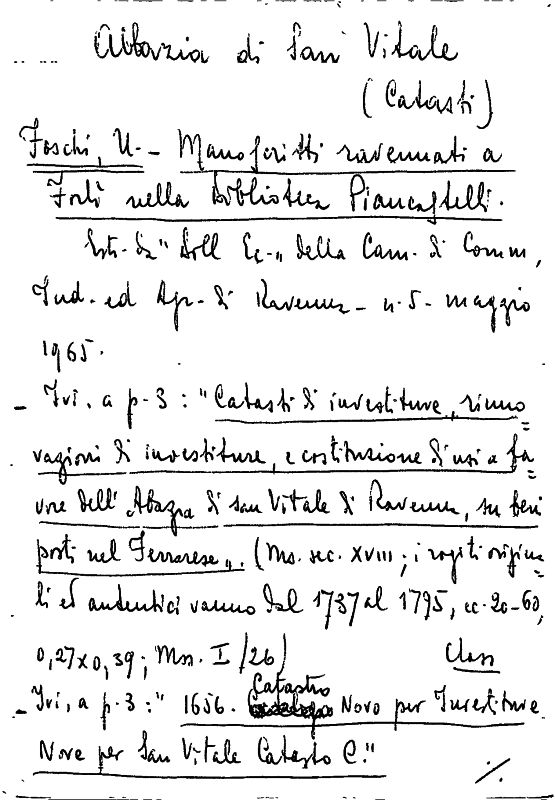 Abbazia di San Vitale
(Catasti)
Foschi, U. - Manoscritti ravennati a
Forlì nella Biblioteca Piancastelli.
Estr. da "Boll Ec." della Cam. di Comm,
Ind. ed Agr. di Ravenna - n. 5 - maggio
1965.
- Ivi, a p. 3 : "Catasti di investiture, rinno=
vazioni di investiture, e costituzione di usi a fa=
vore dell'Abazia di San Vitale di Ravenna, su beni
posti nel Ferrarese". (Ms. sec. XVIII ; i rogiti origina=
li ed autentici vanno dal 1737 al 1795, cc. 20-60,
0,27x0,39; Mss. I/26) Class
- Ivi, a p. 3 : " 1656. Catastro Novo per Investiture
Nove per San Vitale Catasto C."
./.